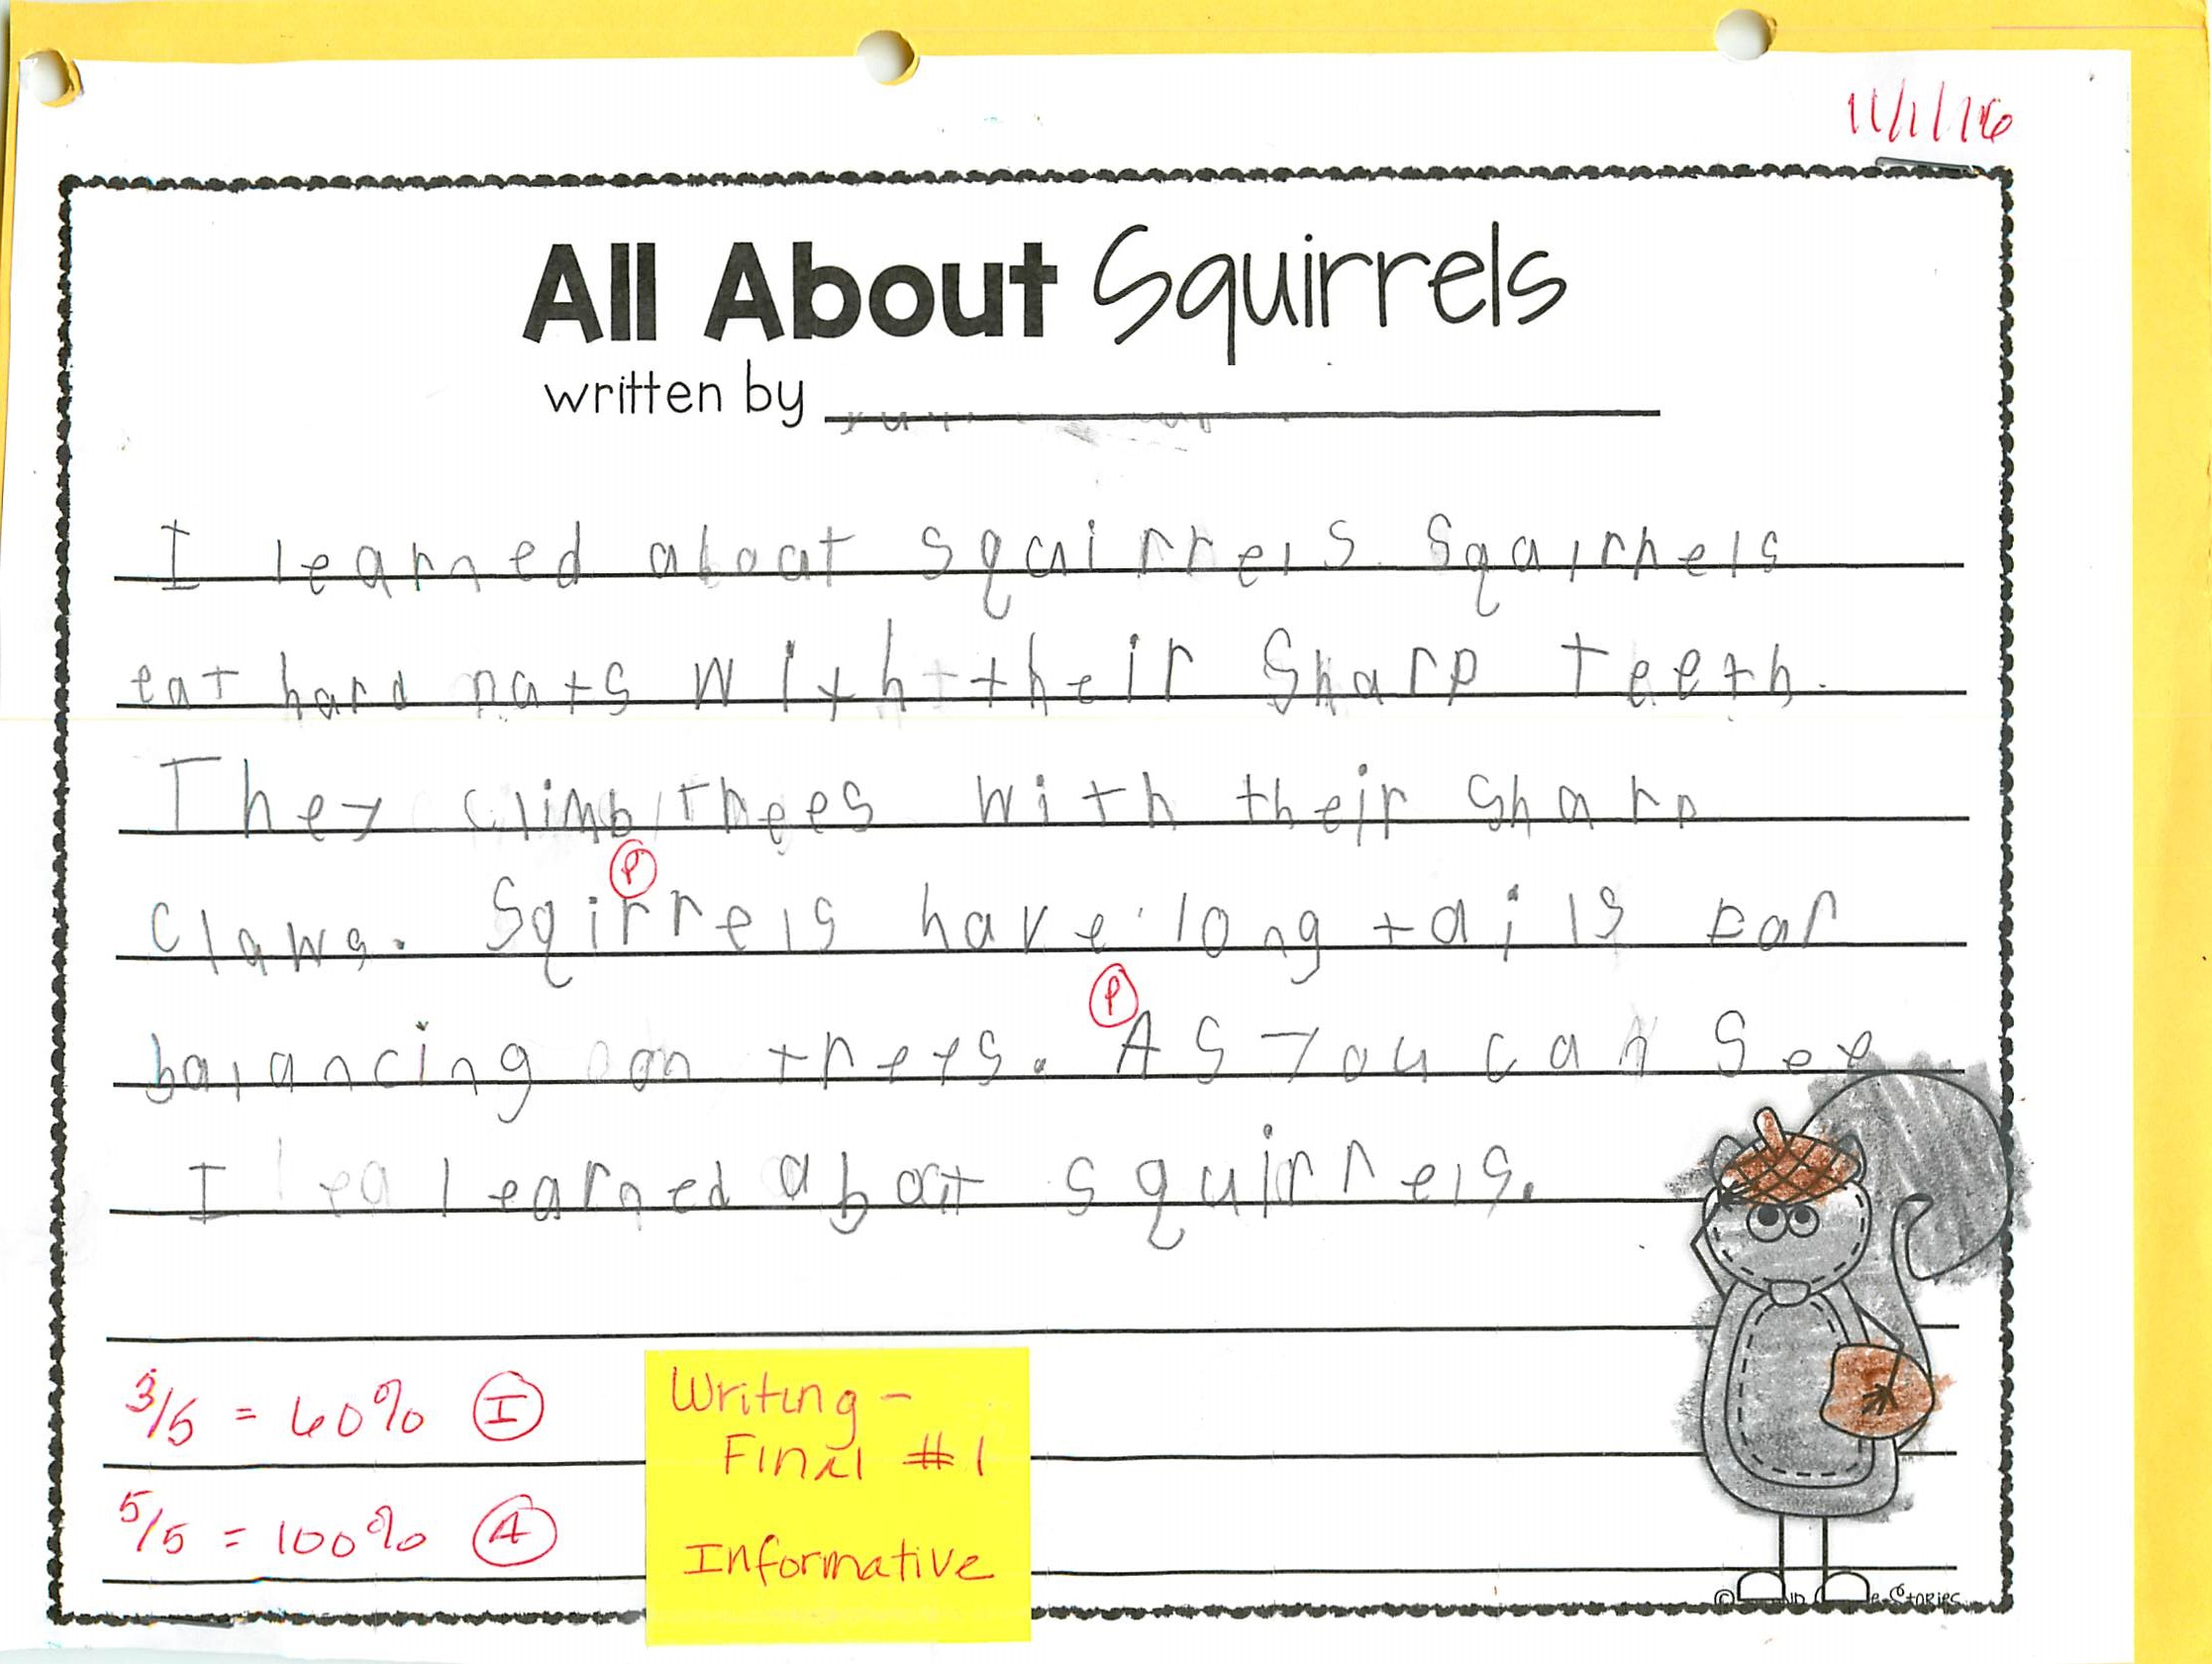 11/1/16
All About Squirrels
written by
I learned about squirrels. Squirrels
eat hard nuts with their sharp teeth.
They climb trees with their sharp
P
claws. Sqirrels have long tails ear
P
balancing on trees. As you can see
I learned about squirrels.
3/5 = 60% I
5/5 = 100% A
Writing -
Final #1
Informative